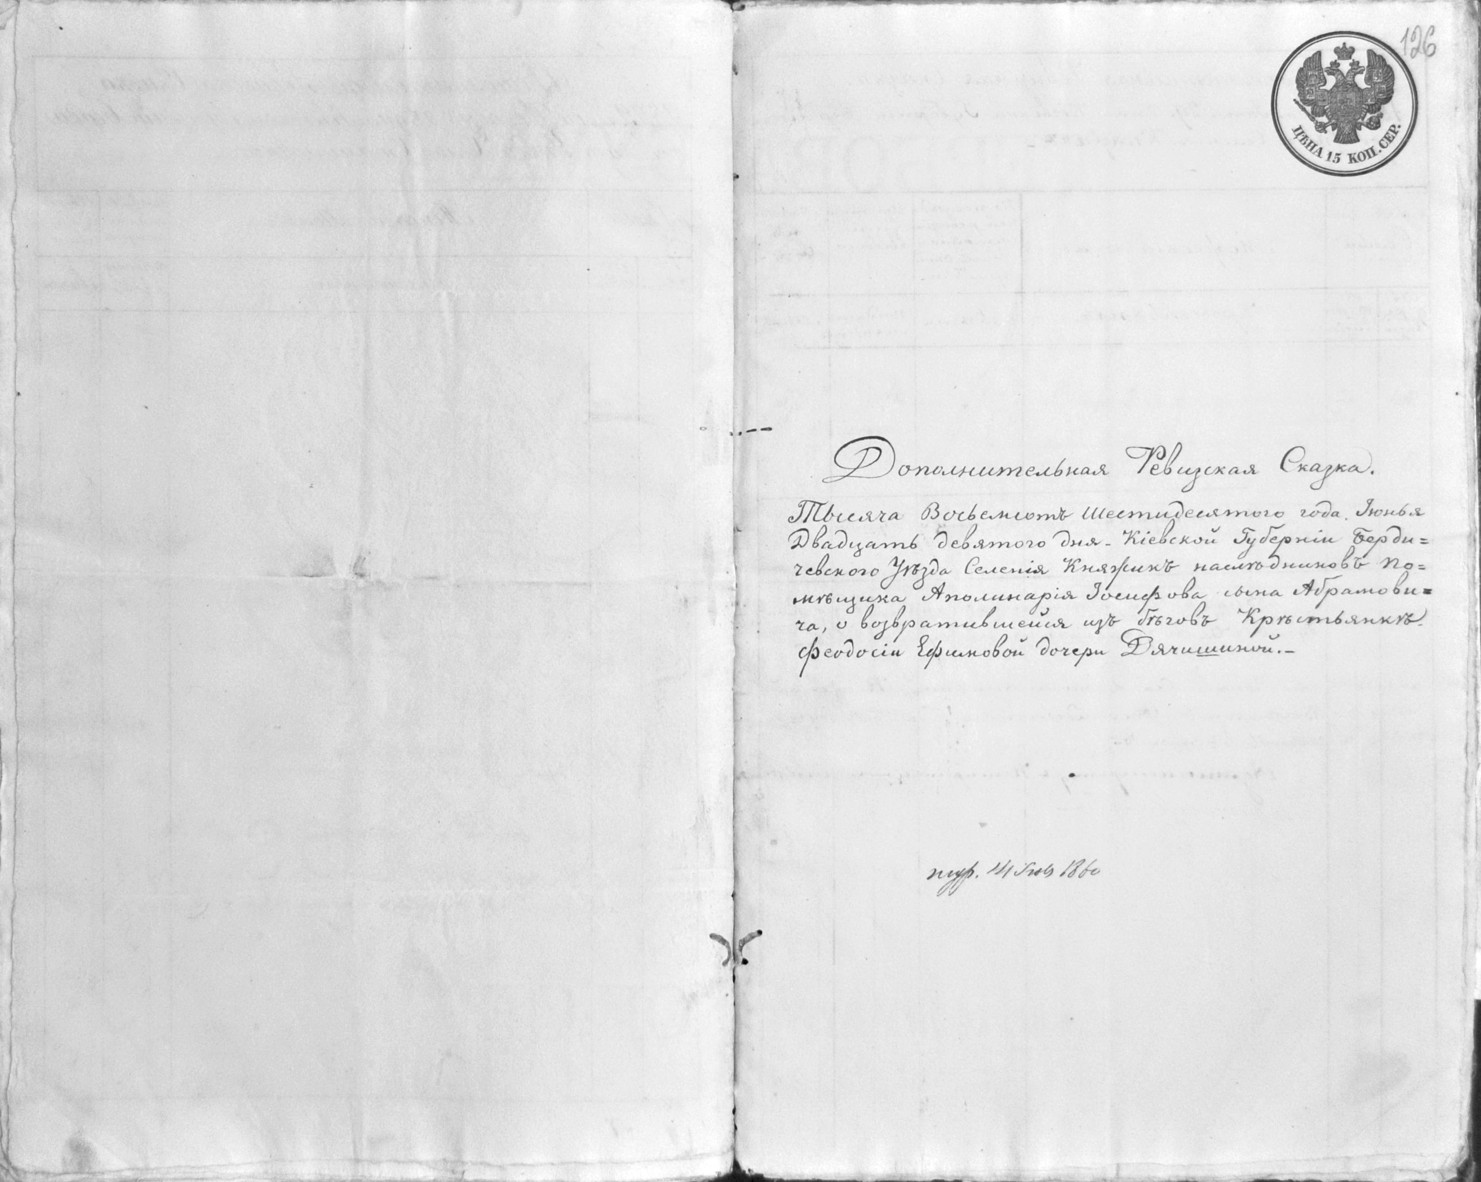 126
ЦѢНА 15 КОП. СЕР.
Дополнительная Ревизская Сказка.
Тысяча Восьемсотъ Шестидесятого года, Іюнья
Двадцать девятого дня - Кіевской Губерніи Берди=
чевского Уѣзда Селенія Княжикъ наслѣдниковъ По=
мѣщика Аполинарія Іосифова сына Абрамови=
ча, о возвратившейся изъ бѣговъ Крѣстьянкѣ
Феодосіи Ефимовой дочери Дячишиной.-
1860